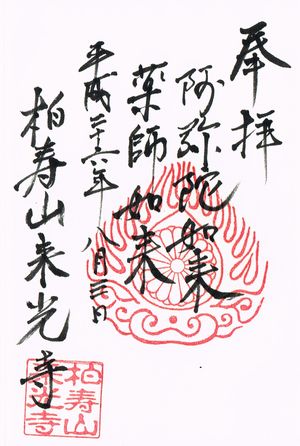 奉拝
阿弥陀如来
薬師如来
平成二十六年八月三日
柏寿山来光寺
柏寿山
来光寺